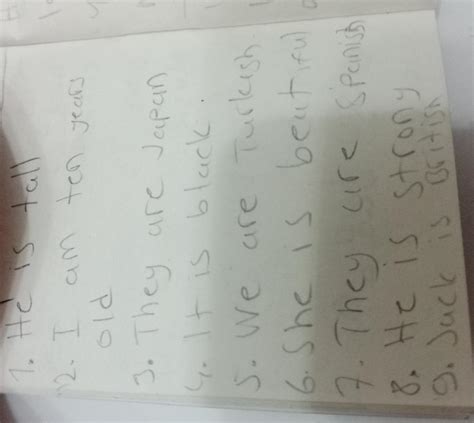 1. He is tall
2. I am ten years
old
3. They are Japan
4. It is black.
5. We are Turkish.
6. She is beatiful
7. They are Spanish
8. He is strong
9. Jack is British